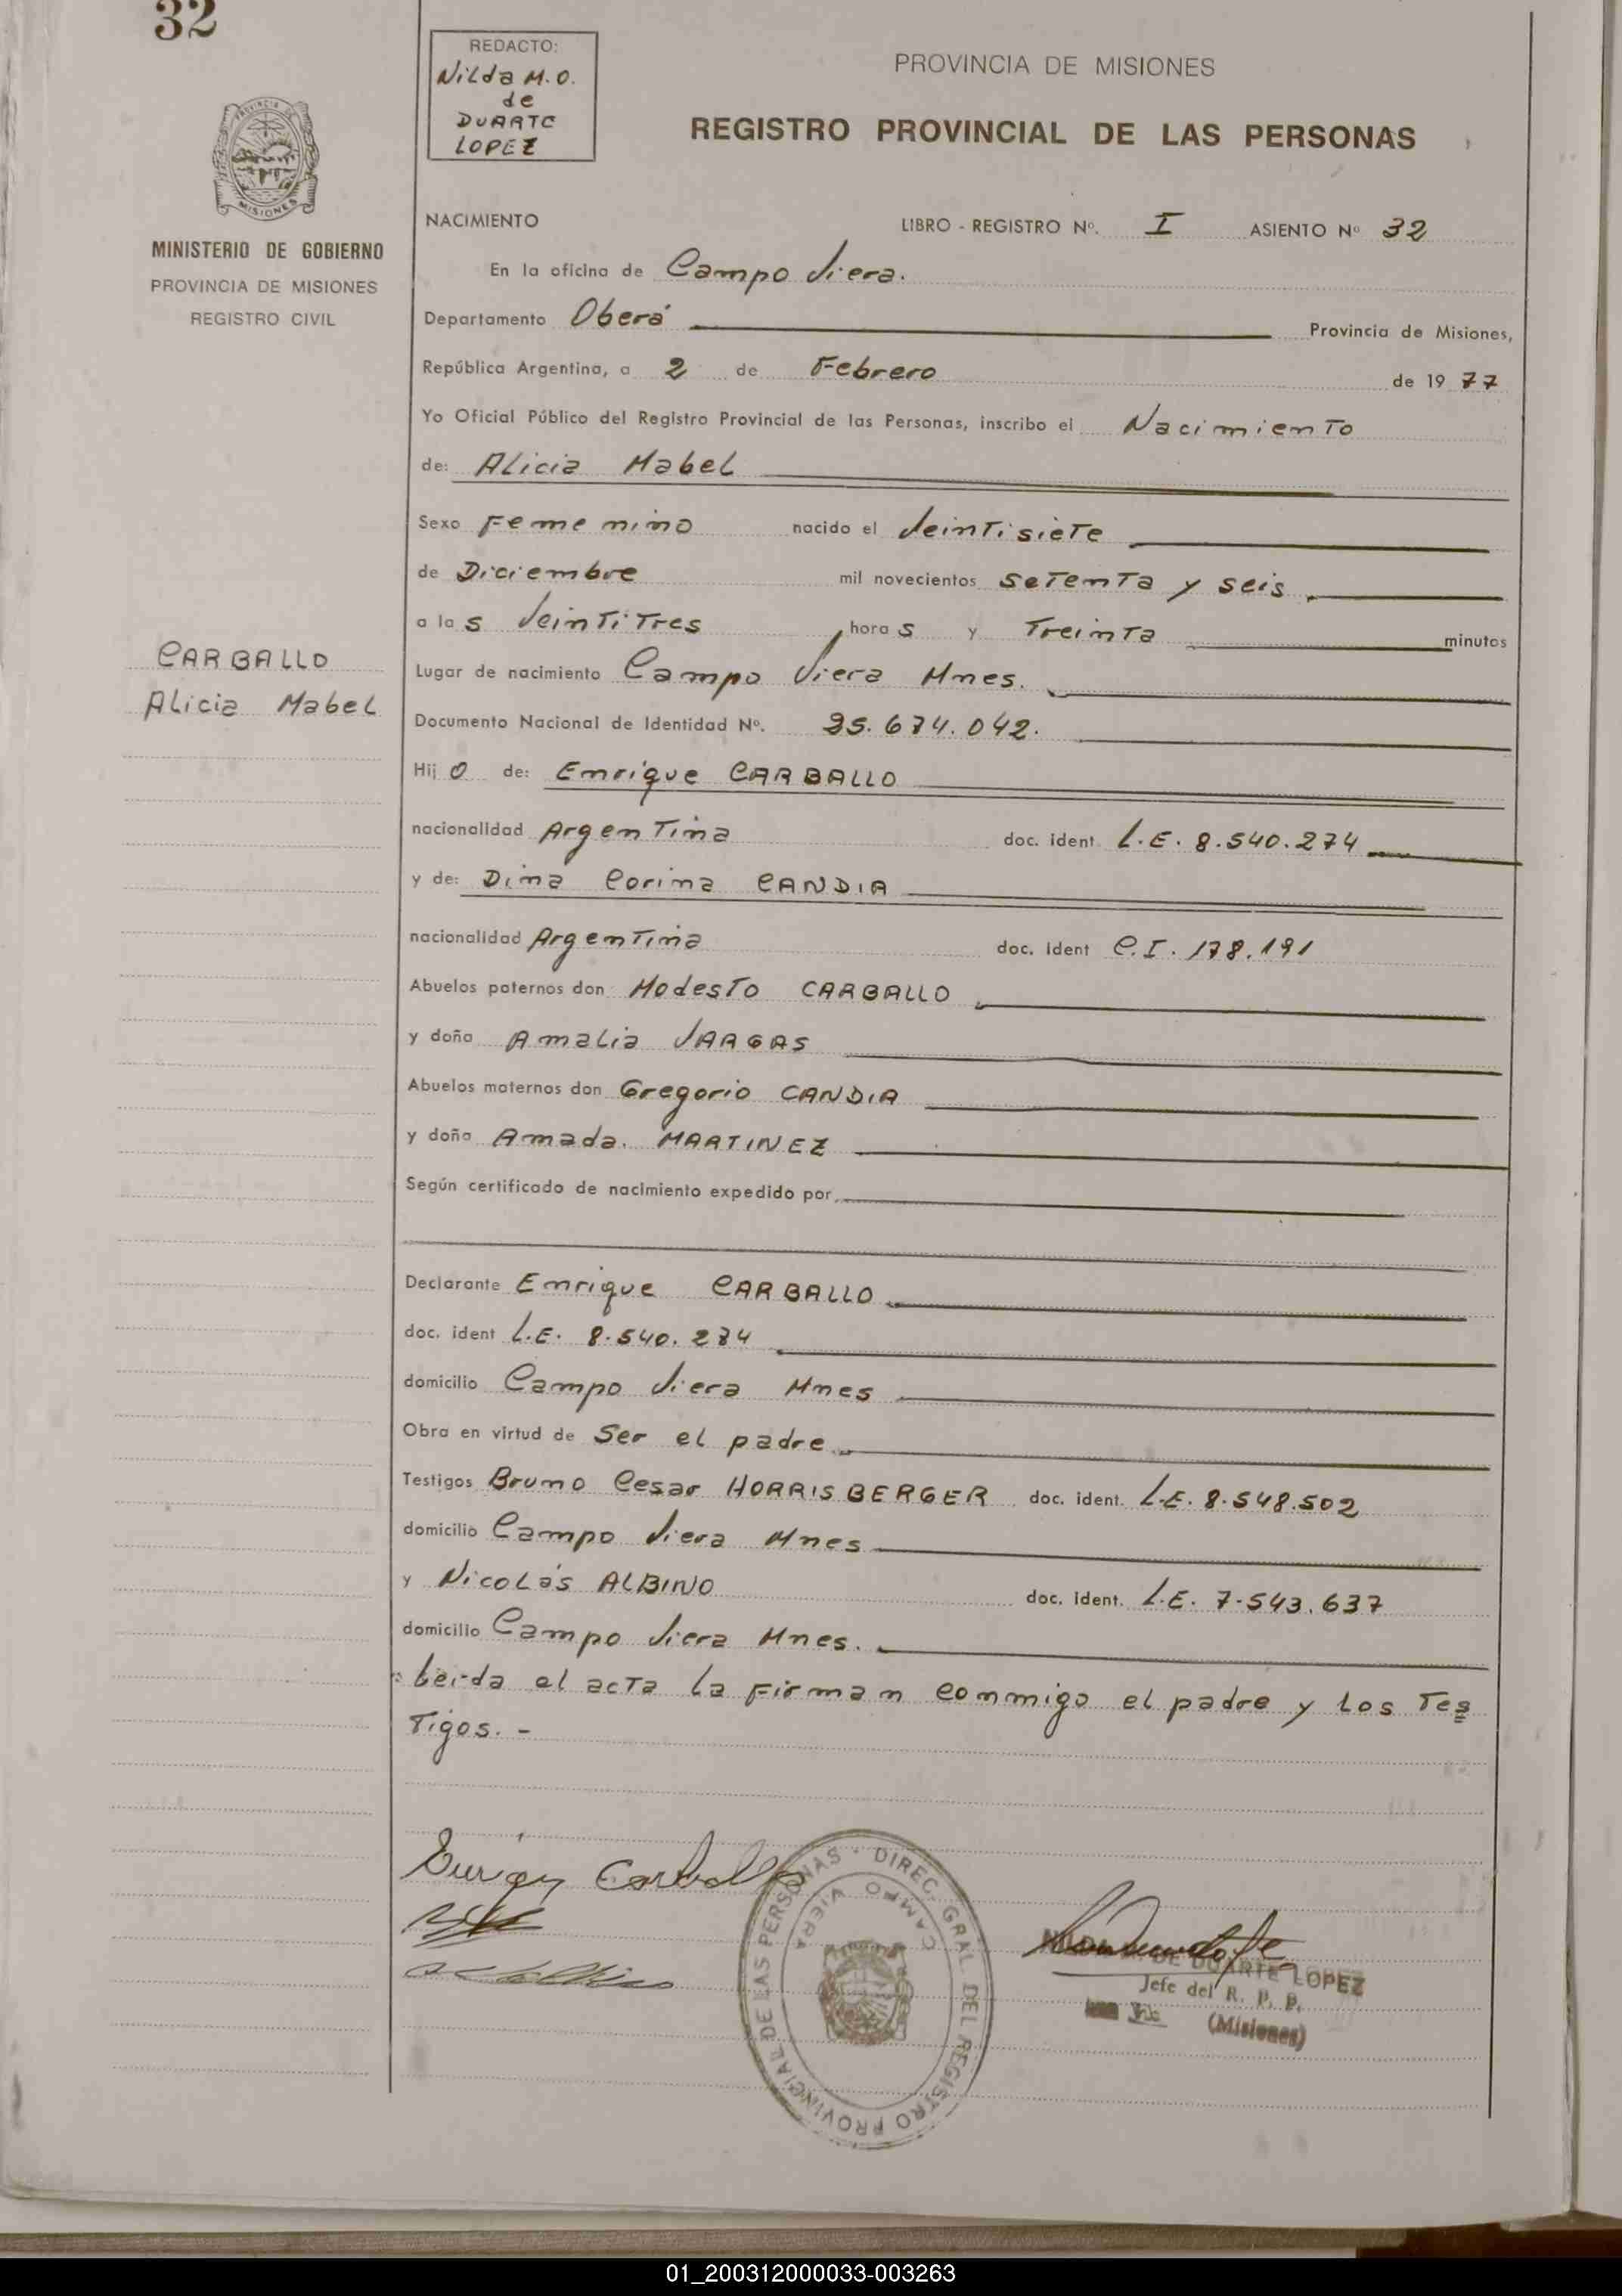 32
REDACTO:
Nilda M. O.
de
DUARTE
LOPEZ
PROVINCIA DE MISIONES
REGISTRO PROVINCIAL DE LAS PERSONAS
PROVINCIA DE
MISIONES
MINISTERIO DE GOBIERNO
PROVINCIA DE MISIONES
REGISTRO CIVIL
NACIMIENTO LIBRO - REGISTRO Nº. I ASIENTO Nº 32
En la oficina de Campo Viera.
Departamento Oberá Provincia de Misiones,
República Argentina, a 2 de Febrero de 19 77
Yo Oficial Público del Registro Provincial de las Personas, inscribo el Nacimiento
de: Alicia Mabel
Sexo Femenino nacido el Veintisiete
de Diciembre mil novecientos setenta y seis
a las Veintitres horas y Treinta minutos
CARBALLO
Alicia Mabel
Lugar de nacimiento Campo Viera Mnes.
Documento Nacional de Identidad Nº. 25.674.042.
Hijo de: Enrique CARBALLO
nacionalidad Argentina doc. ident. L.E. 8.540.274
y de: Dina Corina CANDIA
nacionalidad Argentina doc. ident C.I. 178.191
Abuelos paternos don Modesto CARBALLO
y doña Amalia VARGAS
Abuelos maternos don Gregorio CANDIA
y doña Amada. MARTINEZ
Según certificado de nacimiento expedido por
Declarante Enrique CARBALLO
doc. ident L.E. 8.540.274
domicilio Campo Viera Mnes
Obra en virtud de Ser el padre
Testigos Bruno Cesar HORRISBERGER doc. ident. L.E. 8.548.502
domicilio Campo Viera Mnes
y Nicolás ALBINO doc. ident. L.E. 7.543.637
domicilio Campo Viera Mnes.
Leida el acta la firman conmigo el padre y los Tes
Tigos. -
Carballo
DIREC. GRAL. DEL REGISTRO PROVINCIAL DE LAS PERSONAS
CAMPO VIERA
DE DUARTE LOPEZ
Jefe del R. P. P.
(Misiones)
01_200312000033-003263